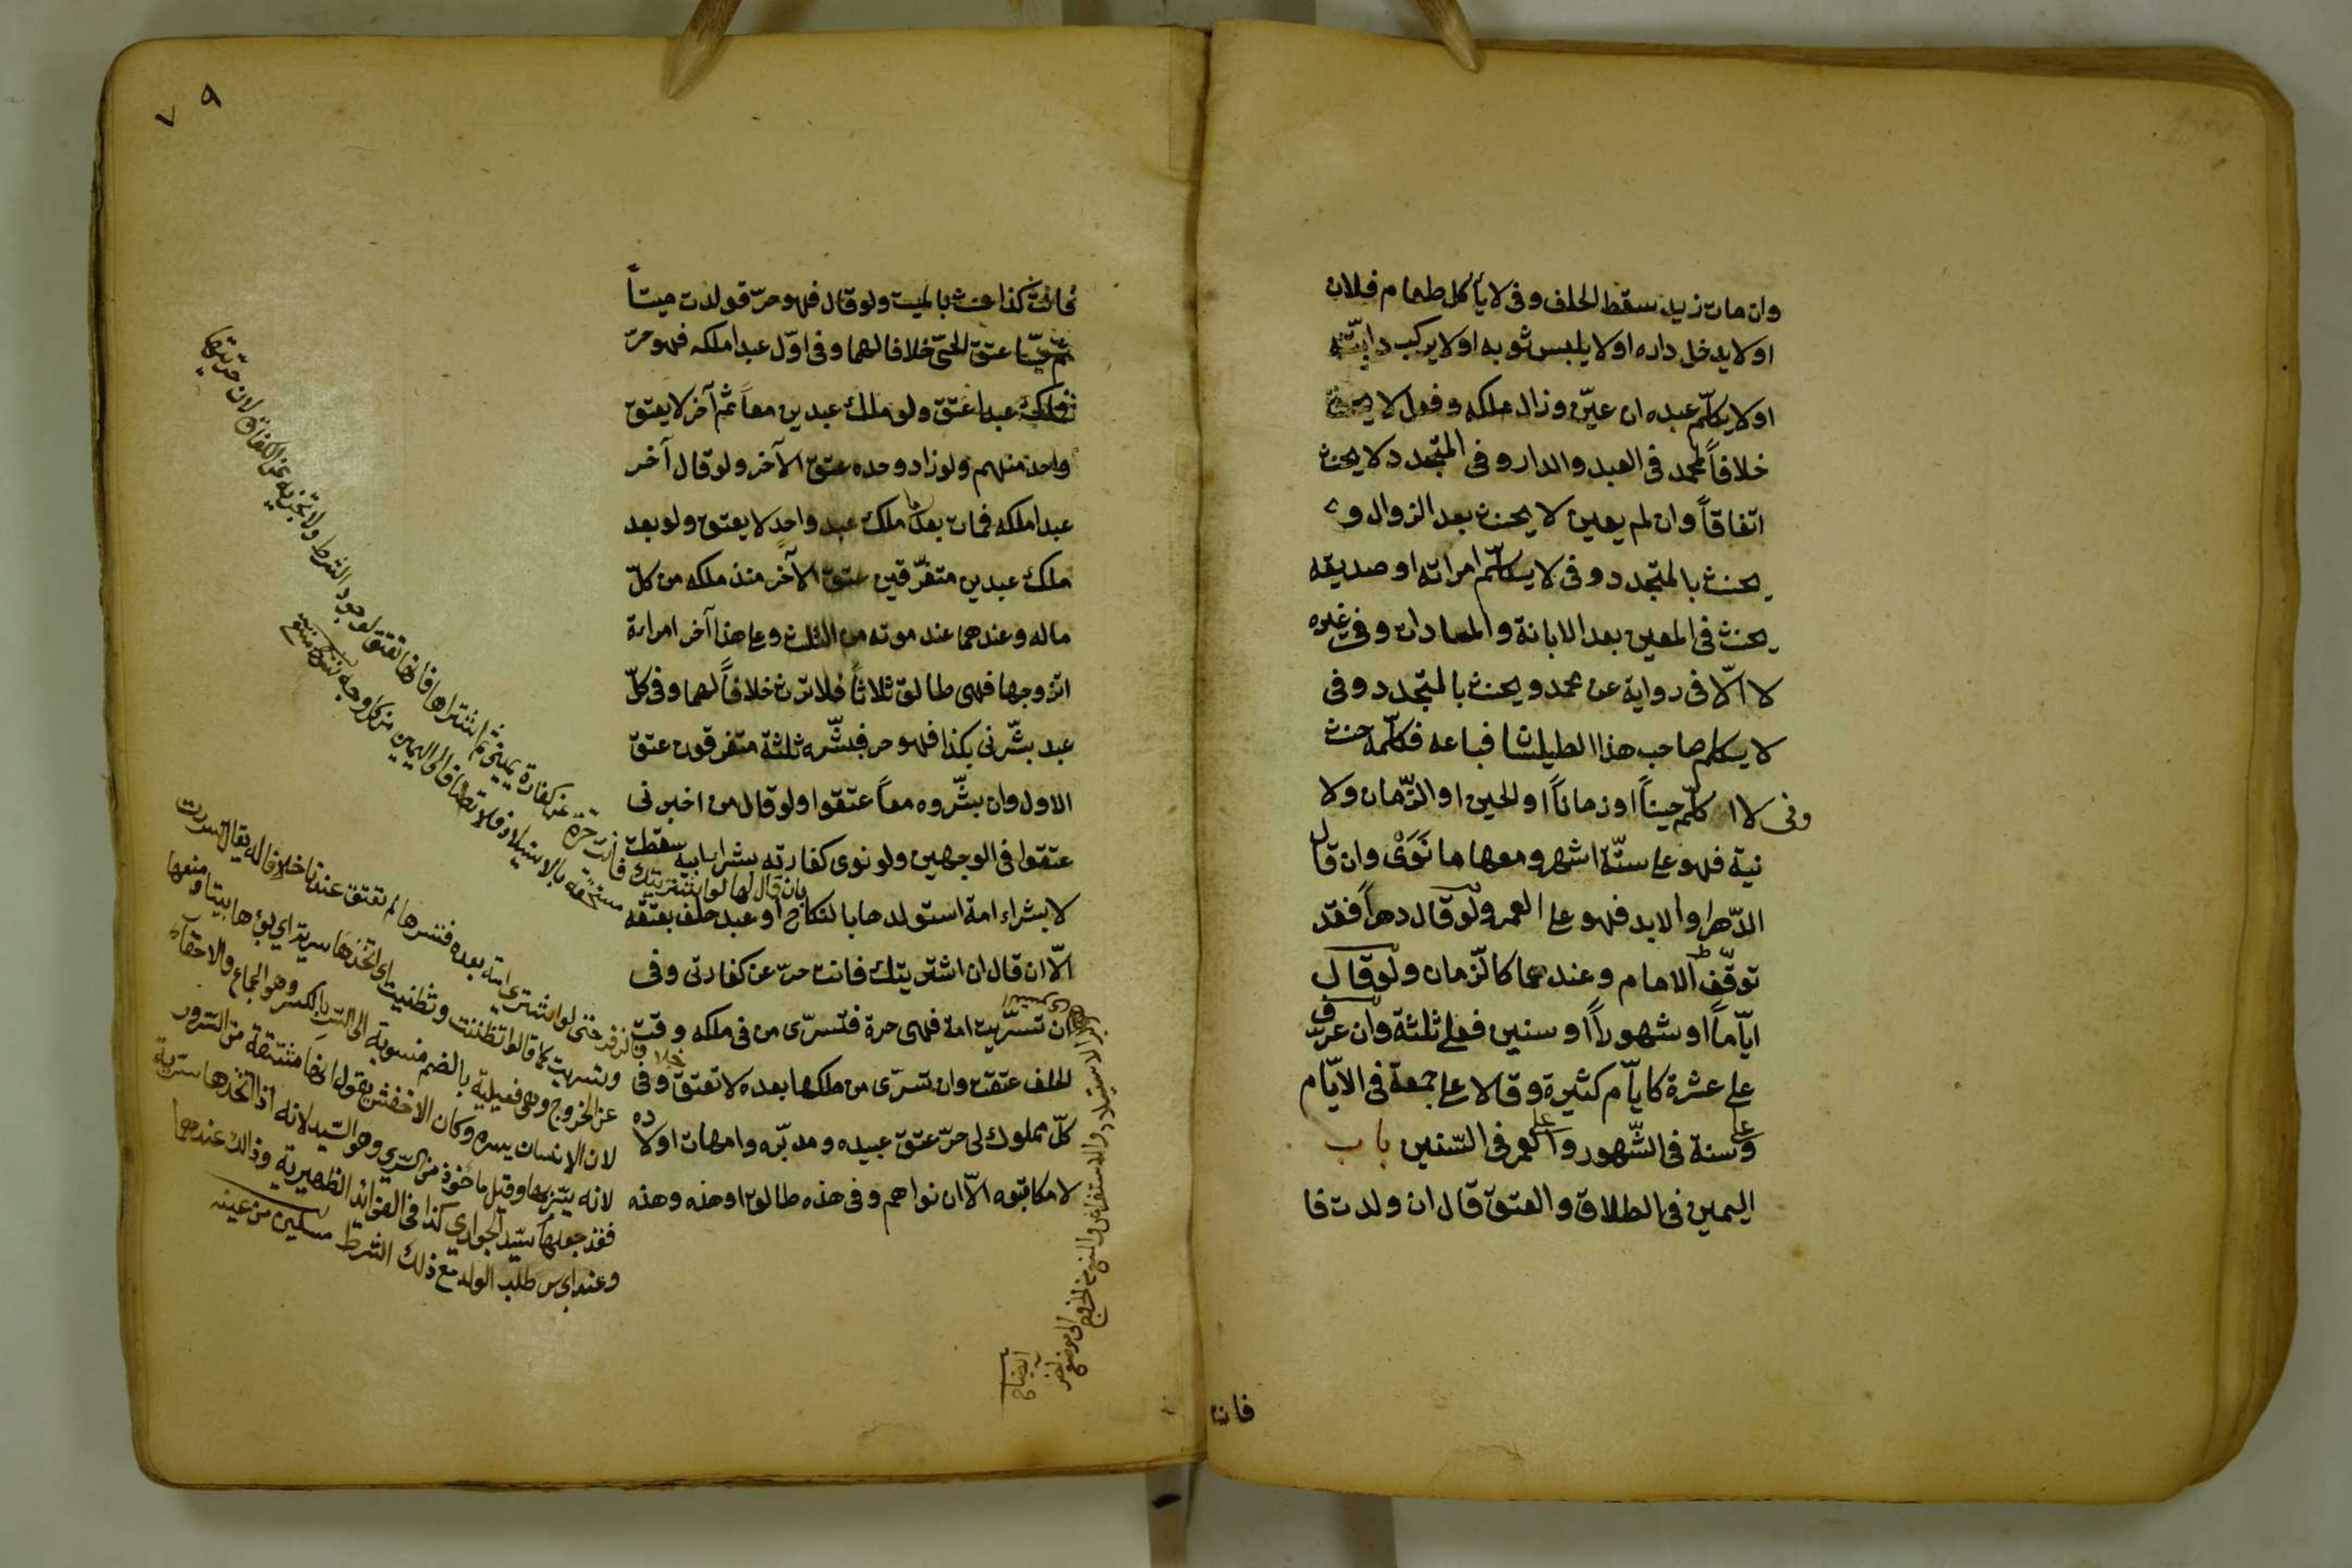 وان مات زيد سقط الحلف وفى لا يأكل طعام فلان
او لا يدخل داره او لا يلبس ثوبه او لا يركب دابّته
او لا يكلّم عبده ان عيّن وزال ملكه وفعل لا يحنث
خلافاً لمحمد فى العبد والدار وفى المتجدد لا يحنث
اتفاقاً وان لم يعين لا يحنث بعد الزوال و
يحنث بالمتجدد وفى لا يكلّم امراته او صديقه
يحنث فى المعين بعد الابانة والمعادات وفى غيره
لا الّا فى رواية عن محمد ويحنث بالمتجدد وفى
لا يكلم صاحب هذا الطيلسان فباعه فكلّمه حنث
وفى لا اكلّم حيناً او زماناً او الحين او الزّمان ولا
نية فهو على ستّة اشهر ومعها ما نَوَىْ وان قال
الدّهر او الابد فهو على العمر ولو قال دهراً فقد
توقّف الامام وعندهما كالزّمان ولو قال
ايّاماً او شهوراً او سنين فعلى ثلثة وان عرّف
على عشرة كايّام كثيرة وقالا على جمعة فى الايّام
وعلى سنة فى الشّهور وعلى العمر فى السّنين باب
اليمين فى الطلاق والعتق قال ان ولدت فا
فانت
٧٩
فانت كذا حنث بالميت ولو قال فهو حرّ فولدت ميتاً
ثم حيّا عتق الحىّ خلافا لهما وفى اوّل عبد املكه فهو حرّ
فملك عبدا عتق ولو ملك عبدين معاً ثم آخر لا يعتق
واحد منهم ولو زاد وحده عتق الآخر ولو قال آخر
عبد املكه فمات بعد ما ملك عبد واحد لا يعتق ولو بعد
ملك عبدين متفرّقين عتق الآخر منذ ملكه من كلّ
ماله وعندهما عند موته من الثلث وعلى هذا آخر امراءة
اتزوجها فهى طالق ثلاثاً فلا ترث خلافاً لهما وفى كلّ
عبد بشّرنى بكذا فهو حر فبشّره ثلثة متفرقون عتق
الاول وان بشّروه معاً عتقوا ولو قال من اخبرنى
عتقوا فى الوجهين ولو نوى كفارته بشراء ابيه سقطت
لا بشراء امة استولدها بالنكاح او عبد حلف بعتقه
الّا ان قال ان اشتريتك فانت حرّ عن كفارتى وفى
ان تسرّيت امة فهى حرة فتسرّى من فى ملكه وقت
الحلف عتقت وان تسرّى من ملكها بعده لا تعتق وفى
كلّ مملوك لى حرّ عتق عبيده ومدبّره وامهات اولاده
لا مكاتبوه الّا ان نواهم وفى هذه طالق او هذه وهذه
بان قال لها لو اشتريتك فانت حرة عن كفارة يمينى ثم اشتراها فانها تعتق لوجود الشرط ولا تجزيه عن الكفارة لان حريتها
مستحقة بالاستيلاد فلا تضاف الى اليمين من كل وجه
خلافا لزفر حتى لو اشترى امة بعده فتسراها لم تعتق عندنا خلافا له يقال تسررت
وتسريت كما قالوا تظننت وتظنيت اى اتخذها سرية اى بوّءها بيتا ومنعها
عن الخروج وهى فعيلية بالضم منسوبة الى السّر بالكسر وهو الجماع والاخفاء
لان الانسان يسره وكان الاخفش يقول انها مشتقة من السرور
لانه يسّر بها وقيل ماخوذة من السّرى وهو السّيد لانه اذا اتخذها سرية
فقد جعلها سيّد الجوارى كذا فى الفوائد الظهيرية وذالك عندهما
وعند ابى س طلب الولد مع ذلك الشرط مسكين من عينه